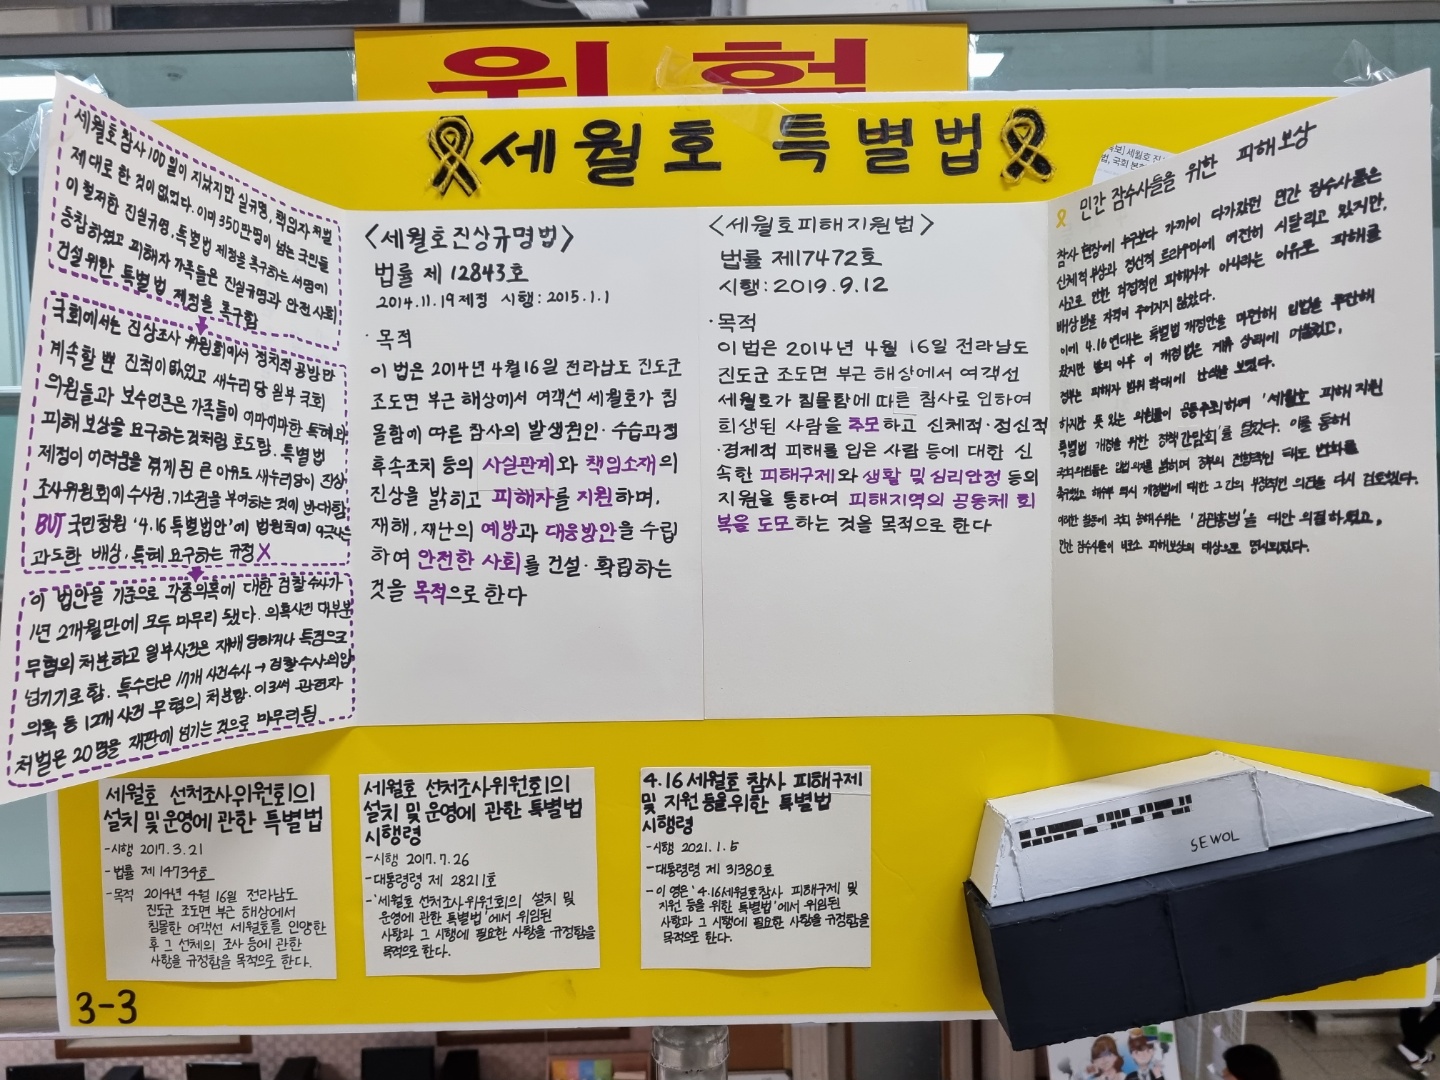 위험
세월호 특별법
세월호 참사 100일이 지났지만 실규명, 책임자 처벌
제대로 한 것이 없었다. 이미 350만명이 넘는 국민들
이 철저한 진실규명, 특별법 제정을 촉구하는 서명에
동참하였고 피해자 가족들은 진실규명과 안전 사회
건설위한 특별법 제정을 촉구함
국회에서는 진상조사 위원회에서 정치적 공방만
계속할 뿐 진척이 없었고 새누리당 일부 국회
의원들과 보수언론은 가족들이 어마어마한 특혜와
피해 보상을 요구하는 것처럼 호도함. 특별법
제정이 어려움을 겪게 된 큰 이유도 새누리당이 진상
조사위원회에 수사권, 기소권을 부여하는 것에 반대함
BUT 국민청원 '4.16 특별법안'에 법원칙에 어긋나는
과도한 배상, 특혜 요구하는 규정 X
이 법안을 기준으로 각종의혹에 대한 검찰수사가
1년 2개월만에 모두 마무리 됐다. 의혹사건 대부분
무혐의 처분하고 일부사건은 재배당하거나 특검으로
넘기기로 함. 특수단은 17개 사건수사 → 검찰수사외압
의혹 등 12개 사건 무혐의 처분함. 이로써 관련자
처벌은 20명을 재판에 넘기는 것으로 마무리됨
<세월호진상규명법>
법률 제 12843호
2014.11.19 제정 시행: 2015.1.1
· 목적
이 법은 2014년 4월 16일 전라남도 진도군
조도면 부근 해상에서 여객선 세월호가 침
몰함에 따른 참사의 발생원인·수습과정
후속조치 등의 사실관계와 책임소재의
진상을 밝히고 피해자를 지원하며,
재해, 재난의 예방과 대응방안을 수립
하여 안전한 사회를 건설·확립하는
것을 목적으로 한다
<세월호피해지원법>
법률 제17472호
시행: 2019.9.12
· 목적
이 법은 2014년 4월 16일 전라남도
진도군 조도면 부근 해상에서 여객선
세월호가 침몰함에 따른 참사로 인하여
희생된 사람을 추모하고 신체적·정신적
·경제적 피해를 입은 사람 등에 대한 신
속한 피해구제와 생활 및 심리안정 등의
지원을 통하여 피해지역의 공동체 회
복을 도모하는 것을 목적으로 한다
민간 잠수사들을 위한 피해보상
참사 현장에 누구보다 가까이 다가갔던 민간 잠수사들은
신체적 부상과 정신적 트라우마에 여전히 시달리고 있지만,
사고로 인한 직접적인 피해자가 아니라는 이유로 피해를
배상받을 자격이 주어지지 않았다.
이에 4.16연대는 특별법 개정안을 마련해 입법을 추진해
왔지만 발의 이후 이 개정법은 계류 상태에 머물렀고,
정부는 피해자 범위 확대에 난색을 보였다.
하지만 뜻 있는 의원들이 공동주최하여 '세월호 피해지원
특별법 개정을 위한 정책간담회'를 열었다. 이를 통해
국회의원들은 입법의지를 밝히며 정부의 전향적인 태도 변화를
촉구했고 해수부 역시 개정법에 대한 그간의 부정적인 의견을 다시 검토했다.
이러한 활동에 국회 농해수위는 '김관홍법'을 대안 의결하였고,
민간 잠수사들이 비로소 피해보상의 대상으로 명시되었다.
세월호 선체조사위원회의
설치 및 운영에 관한 특별법
-시행 2017.3.21
-법률 제14734호
-목적 2014년 4월 16일 전라남도
진도군 조도면 부근 해상에서
침몰한 여객선 세월호를 인양한
후 그 선체의 조사 등에 관한
사항을 규정함을 목적으로 한다.
세월호 선체조사위원회의
설치 및 운영에 관한 특별법
시행령
-시행 2017.7.26
-대통령령 제 28211호
-'세월호 선체조사위원회의 설치 및
운영에 관한 특별법'에서 위임된
사항과 그 시행에 필요한 사항을 규정함을
목적으로 한다.
4.16 세월호 참사 피해구제
및 지원 등을위한 특별법
시행령
-시행 2021.1.5
-대통령령 제 31380호
-이 영은 '4.16세월호참사 피해구제 및
지원 등을 위한 특별법'에서 위임된
사항과 그 시행에 필요한 사항을 규정함을
목적으로 한다.
SEWOL
3-3